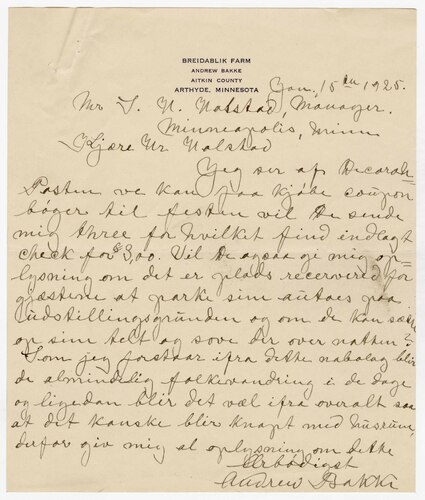 BREIDABLIK FARM
ANDREW BAKKE
AITKIN COUNTY
ARTHYDE, MINNESOTA
Jan. 15 1925.
Mr. Manager.
Minneapolis, Minn
Kjære Mr
Jeg ser af Decorah-
Posten ve kan faa kjøbe coupon
bøger til festen vil De sende
mig three for hvilket find indlagt
check for Vil De ogsaa gi mig op-
lysning om det er plads for
gjæsterne at parke sine autoes paa
udstillingsgrunden og om de kan
op sine telt og sove der over natten?
Som jeg forstaar ifra dette nabolag blir
de almindelig folkevandring i de dage
og ligedan blir det vel ifra overalt saa
at det kanske blir knapt med husrum,
derfor giv mig al oplysning om dette
Ærbødigst
Andrew Bakke